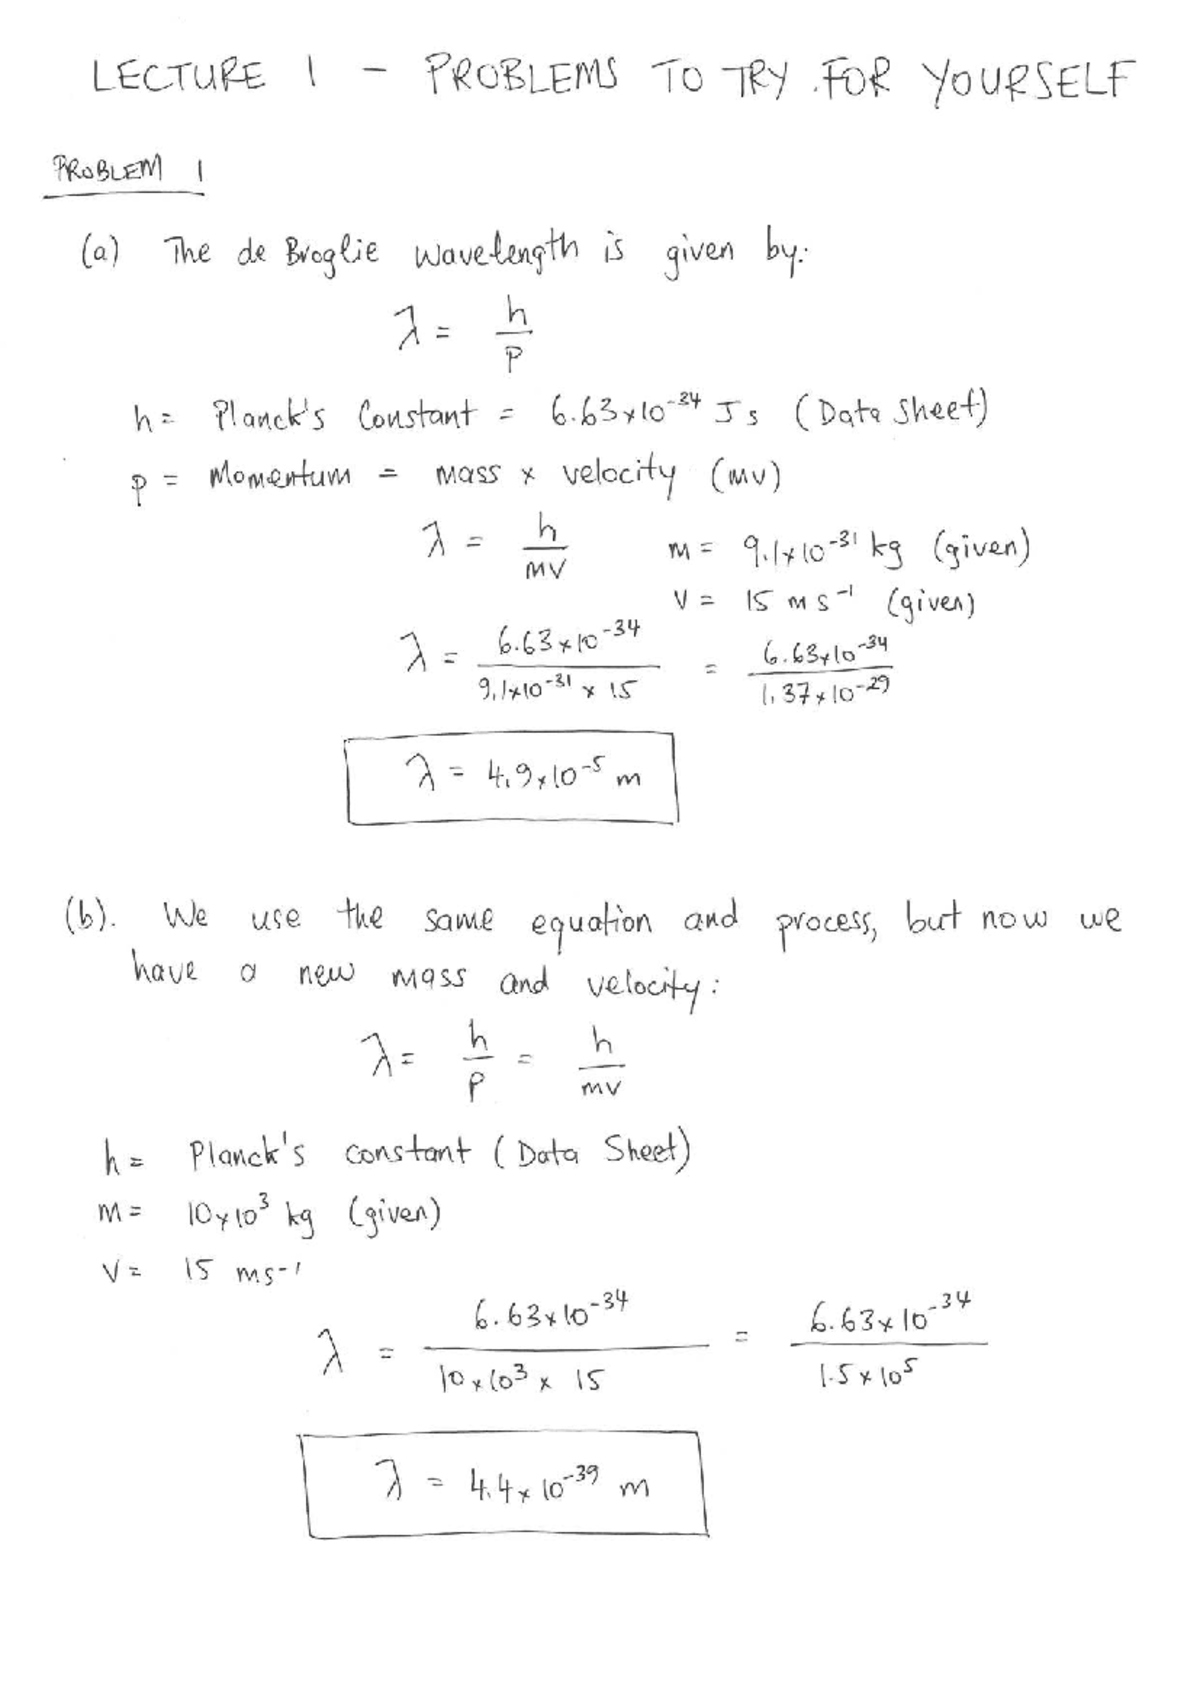 LECTURE 1 - PROBLEMS TO TRY FOR YOURSELF
PROBLEM 1
(a) The de Broglie wavelength is given by:
λ = h/p
h = Planck's Constant = 6.63×10⁻³⁴ J s (Data Sheet)
p = Momentum = mass × velocity (mv)
λ = h/mv m = 9.1×10⁻³¹ kg (given)
v = 15 m s⁻¹ (given)
λ = 6.63×10⁻³⁴ / 9.1×10⁻³¹ × 15 = 6.63×10⁻³⁴ / 1.37×10⁻²⁹
λ = 4.9×10⁻⁵ m
(b). We use the same equation and process, but now we
have a new mass and velocity:
λ = h/p = h/mv
h = Planck's constant (Data Sheet)
m = 10×10³ kg (given)
v = 15 ms⁻¹
λ = 6.63×10⁻³⁴ / 10×10³ × 15 = 6.63×10⁻³⁴ / 1.5×10⁵
λ = 4.4×10⁻³⁹ m